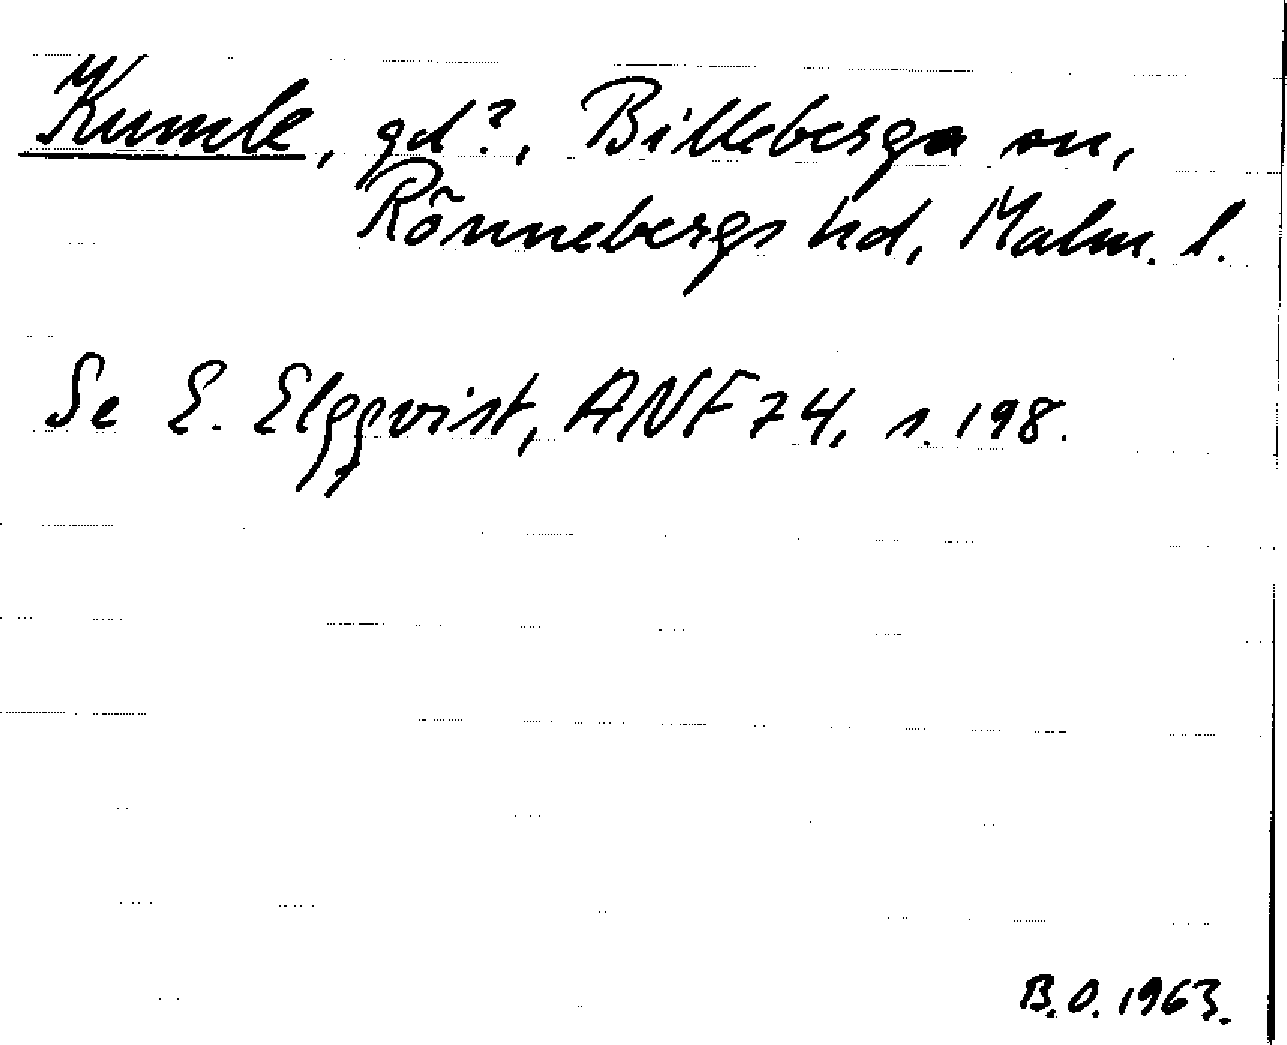 Kumle, gd?, Billeberga sn,
Rönnebergs hd, Malm. l.
Se E. Elgqvist, ANF 74, s. 198.
B.O. 1963.